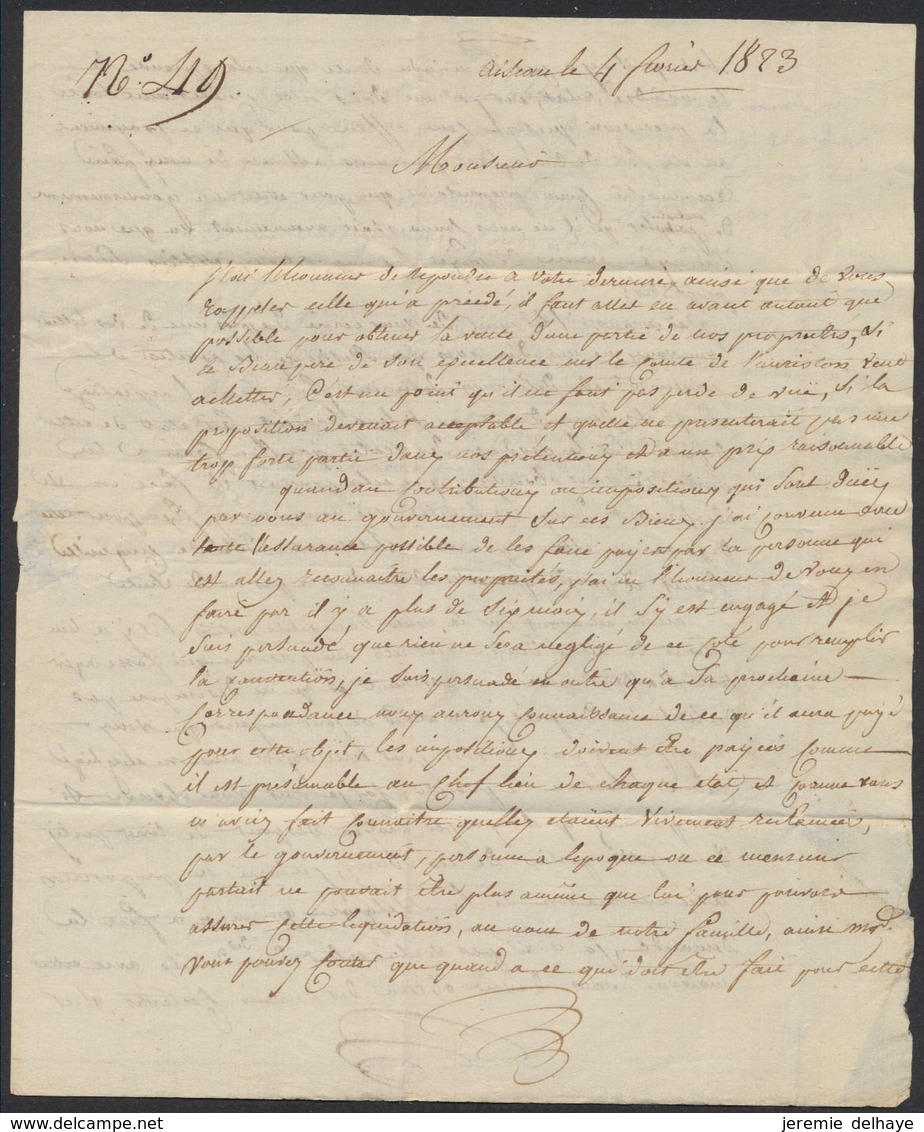 N°. 49.
aiseau le 4 fevrier 1823
Monsieur
j'ai l'honneur de repondre a votre derniere ainsi que de vous
rappeler celle qui a precedé, il faut aller en avant autant que
possible pour obtenir la vente d'une partie de nos proprietés, si
le Beau pere de son excellence mr le Comte de Lauriston veut
achetter, C'est un point qu'il ne faut pas perde de vuë, si la
proposition devenait acceptable et quelle ne presenterait pas une
trop forte partie dans nos prétentions et a un prix raisonnable
quand au Contributions ou impositions qui sont duës
par nous au gouvernement sur ces Biens, j'ai
l'assurance possible de les faire payer par la personne qui
est allez reconnaitre les proprietés, j'ai eu l'honneur de vous en
faire par il y a plus de six mois, il s'y est engagé et je
suis persuadé que rien ne sera negligé de ce coté pour remplir
la convention, je suis persuadé en outre qu'a sa prochaine
Correspondance nous aurons Connaissance de ce qu'il aura payé
pour cette objet, les impositions doivent être payées Comme
il est présumable au Chef lieu de chaque etat, et Comme vous
m'aviez fait Connaitre quelles etaient vivement reclamées,
par le gouvernement, personne a l'epoque ou ce monsieur
partait ne pouvait être plus a même que lui pour pouvoir
assurer cette liquidation, au nom de notre famille, ainsi mr.
vous pouvez Conter que quand a ce qui doit être fait pour cette
jeremie delhaye